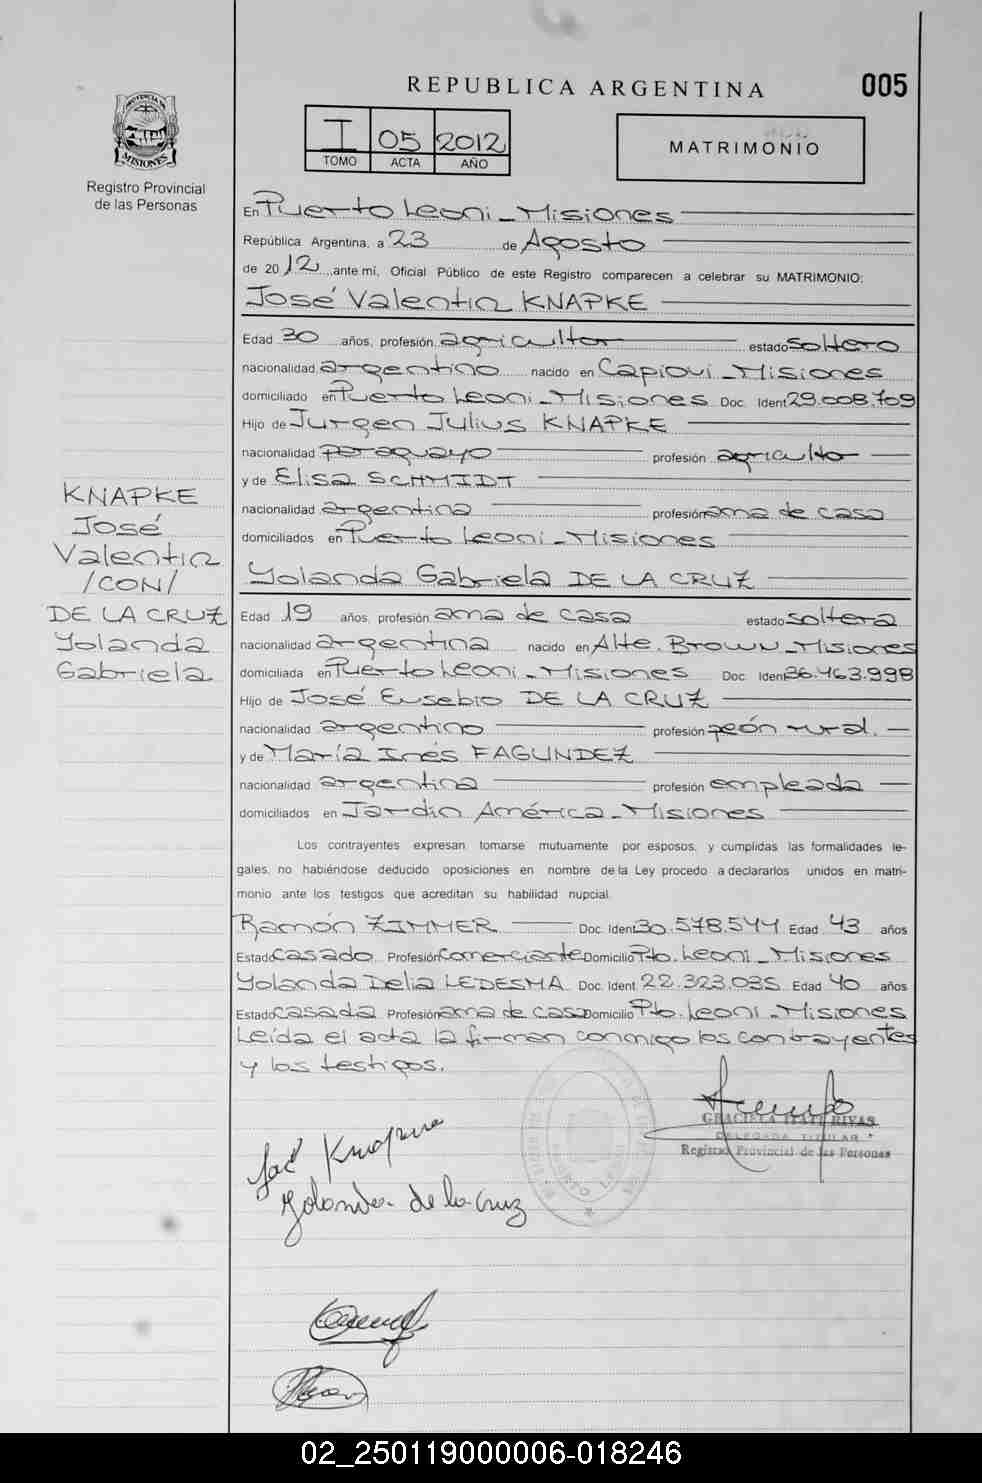 REPUBLICA ARGENTINA
005
PROVINCIA DE MISIONES
Registro Provincial
de las Personas
I 05 2012
TOMO ACTA AÑO
MATRIMONIO
En Puerto Leoni - Misiones
República Argentina, a 23 de Agosto
de 2012, ante mí, Oficial Público de este Registro comparecen a celebrar su MATRIMONIO:
José Valentin KNAPKE
Edad 30 años, profesión agricultor estado soltero
nacionalidad argentino nacido en Capiovi - Misiones
domiciliado en Puerto Leoni - Misiones Doc. Ident 29.008.709
Hijo de Jurgen Julius KNAPKE
nacionalidad paraguayo profesión agricultor
y de Elisa SCHMIDT
nacionalidad argentina profesión ama de casa
domiciliados en Puerto Leoni - Misiones
KNAPKE
José
Valentin
/CON/
DE LA CRUZ
Yolanda
Gabriela
Yolanda Gabriela DE LA CRUZ
Edad 19 años, profesión ama de casa estado soltera
nacionalidad argentina nacido en Alte. Brown - Misiones
domiciliada en Puerto Leoni - Misiones Doc. Ident 36.463.998
Hijo de José Eusebio DE LA CRUZ
nacionalidad argentino profesión peón rural.
y de María Inés FAGUNDEZ
nacionalidad argentina profesión empleada
domiciliados en Jardin América - Misiones
Los contrayentes expresan tomarse mutuamente por esposos, y cumplidas las formalidades le-
gales, no habiéndose deducido oposiciones en nombre de la Ley procedo a declararlos unidos en matri-
monio ante los testigos que acreditan su habilidad nupcial.
Ramón ZIMMER Doc. Ident 30.578.544 Edad 43 años
Estado Casado Profesión Comerciante Domicilio Pto. Leoni - Misiones
Yolanda Delia LEDESMA Doc. Ident 22.323.035 Edad 40 años
Estado Casada Profesión ama de casa Domicilio Pto. Leoni - Misiones
Leída el acta la firman conmigo los contrayentes
y los testigos.
GRACIELA ITATI RIVAS
DELEGADA TITULAR
Registro Provincial de las Personas
José Knapke
Yolanda de la Cruz
02_250119000006-018246